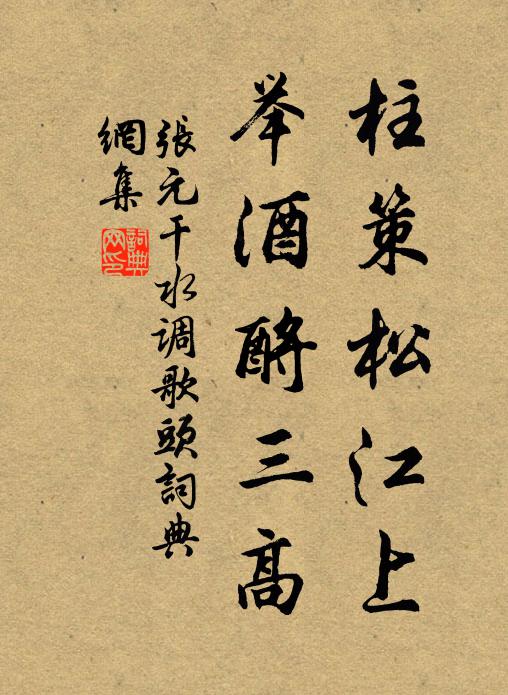 柱策松江上
举酒酹三高
張元干水调歌頭詞典
網集
詞典
网印